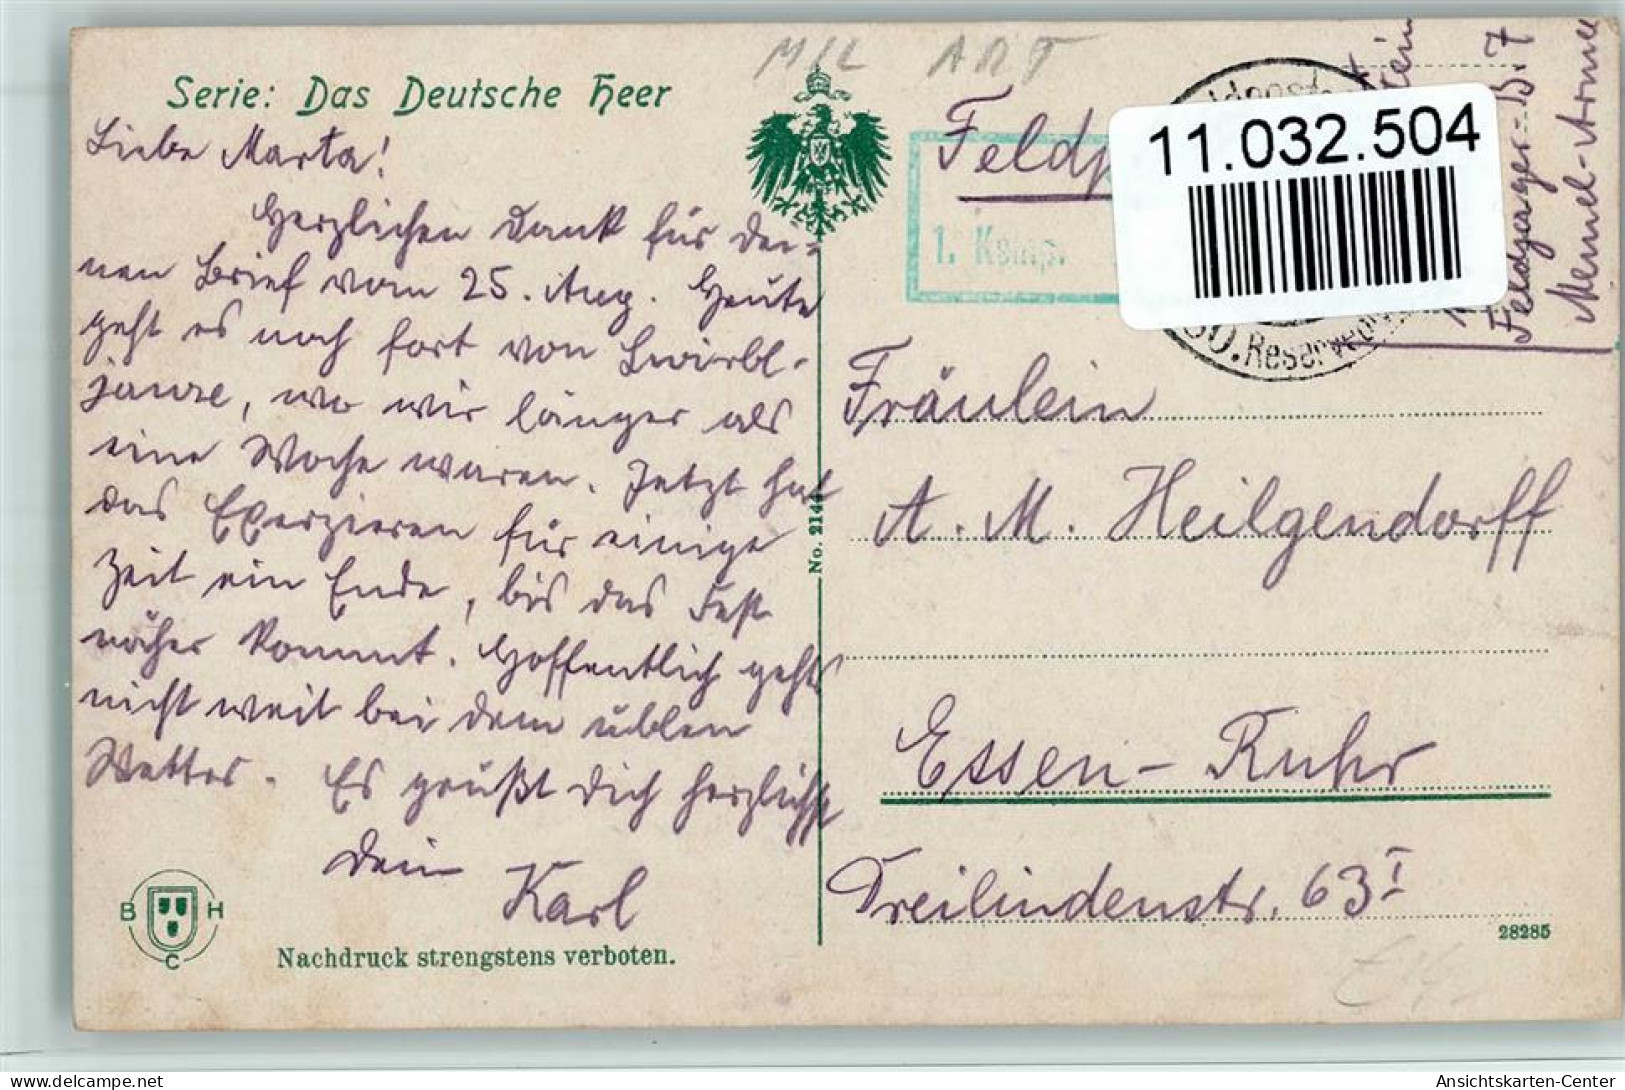 MIL ART
Serie: Das Deutsche Heer
Liebe Marta!
Herzlichen Dank für Dei-
nen Brief vom 25. Aug. Heute
geht es noch fort von
janze, wo wir länger als
eine Woche waren. Jetzt hat
das Exerzieren für einige
Zeit ein Ende, bis das Fest
näher kommt. Hoffentlich gehts
nicht weit bei dem üblen
Wetter. Es grüßt Dich herzlichst
Dein
Karl
B H
C
Nachdruck strengstens verboten.
No. 214
Feldp
1. Komp.
11.032.504
Reserved
Feldjäger-B. 7
Memel-Armee
Fräulein
A. M. Heilgendorff
Essen-Ruhr
Dreilindenstr. 63 I
28285
Ansichtskarten-Center